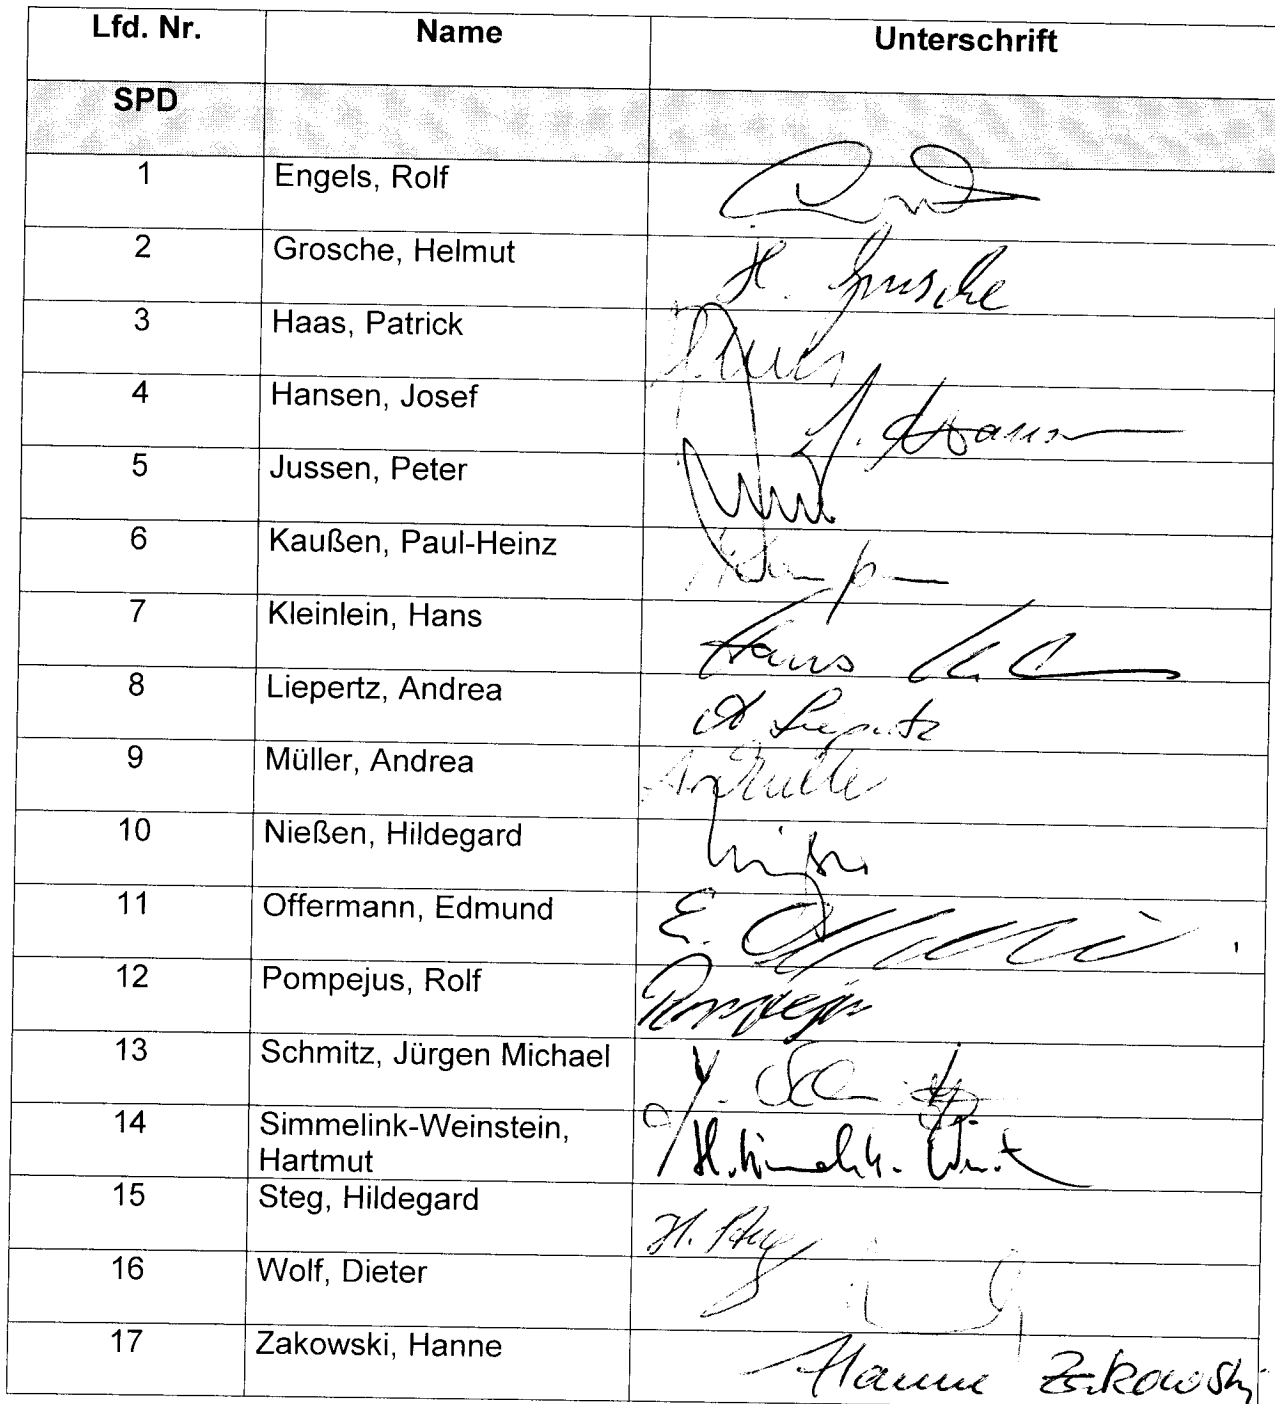 Lfd. Nr. Name Unterschrift
SPD
1 Engels, Rolf
2 Grosche, Helmut H. Grosche
3 Haas, Patrick
4 Hansen, Josef J. Hansen
5 Jussen, Peter
6 Kaußen, Paul-Heinz
7 Kleinlein, Hans Hans
8 Liepertz, Andrea A Liepertz
9 Müller, Andrea
10 Nießen, Hildegard
11 Offermann, Edmund E.
12 Pompejus, Rolf
13 Schmitz, Jürgen Michael
14 Simmelink-Weinstein,
Hartmut
15 Steg, Hildegard H. Steg
16 Wolf, Dieter
17 Zakowski, Hanne Hanne Zakowski